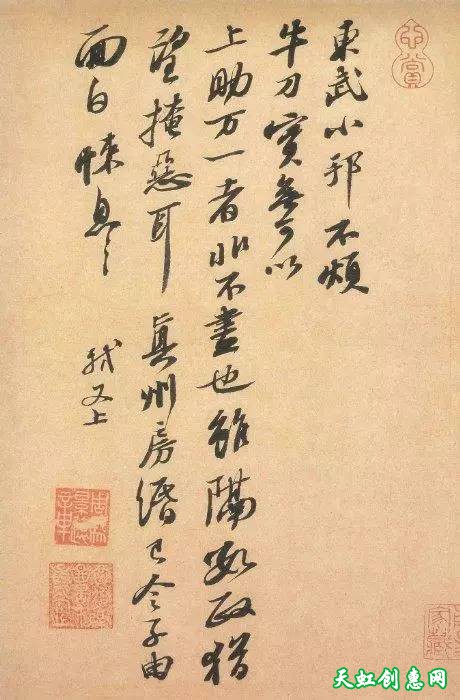 東武小邦不煩
牛刀實無可以
上助万一者非不盡也雖隔數政猶
望掩惡耳 真州房緡已令子由
面白悚息〻
軾又上
天虹创惠网